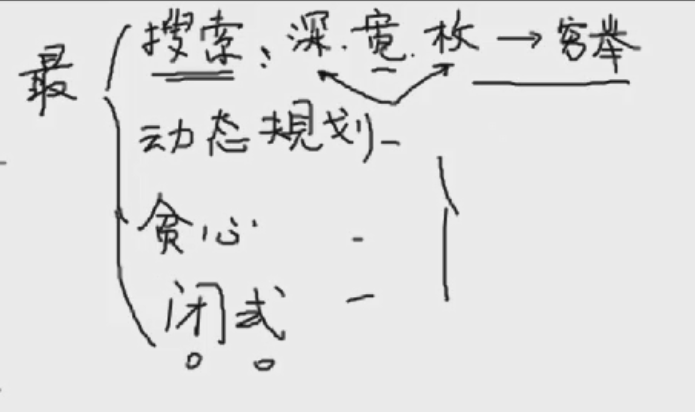 最
搜索、深.宽.枚→穷举
动态规划
贪心
闭式